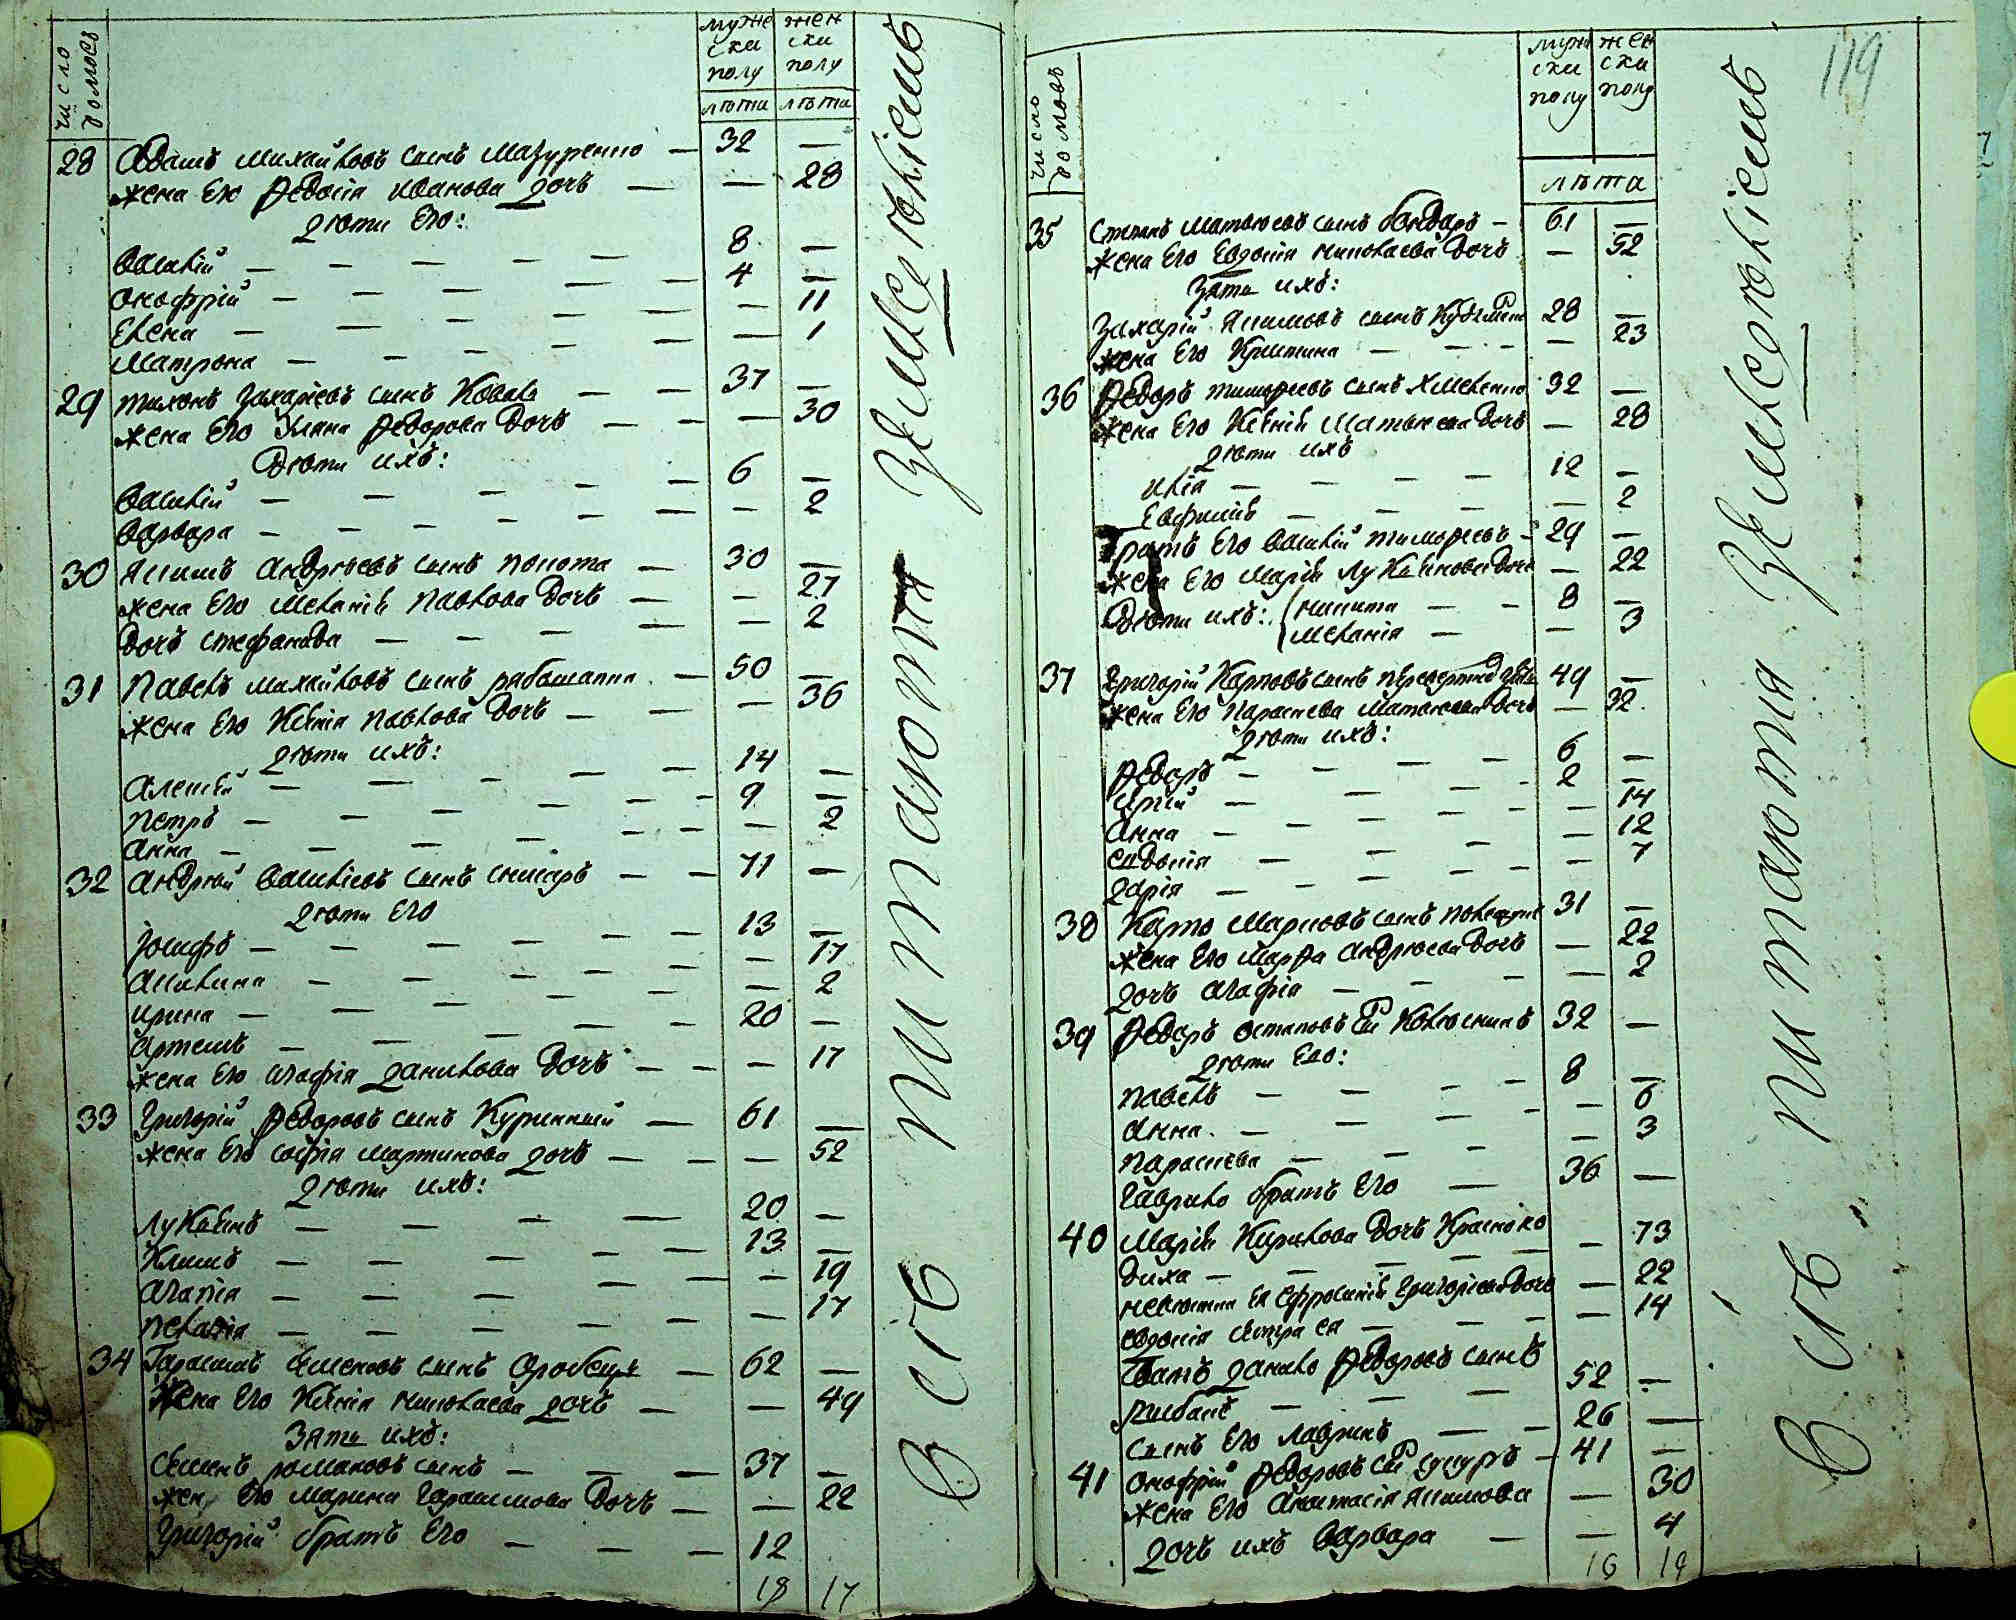 число домовъ
муже ски полу
жен ски полу
лѣта лѣта
28 Адамъ Михайловъ сынъ Мазуренко — 32 —
жена Его Ѳедосія Иванова дочь — — 28
дѣти Его:
Василій — 8 —
Онофрій — 4 —
Елена — — 11
Матрона — — 1
29 Тихонъ Захаріевъ сынъ Коваль — 37 —
жена Его Уляна Ѳедорова дочь — — 30
Дѣти ихъ:
Василій — 6 —
Варвара — — 2
30 Якимъ Андрѣевъ сынъ — 30 —
жена Его Меланія Павлова дочь — — 27
дочь Стефанида — — 2
31 Павелъ Михайловъ сынъ — 50 —
жена Его Ксенія Павлова дочь — — 36
дѣти ихъ:
Алексѣй — 14 —
Петръ — 9 —
Анна — — 2
32 Андрѣй Василіевъ сынъ — 71 —
дѣти Его
Іосифъ — 13 —
Акилина — — 17
Ирина — — 2
Артемъ — 20 —
жена Его Агафія Данилова дочь — — 17
33 Григорій Ѳедоровъ сынъ Куринный — 61 —
жена Его Софія Мартинова дочь — — 52
дѣти ихъ:
Лукіянъ — 20 —
Климъ — 13 —
Агапія — — 19
Пелагія — — 17
34 Герасимъ Семеновъ сынъ — 62 —
Жена Его Ксенія Николаева дочь — — 49
Зяти ихъ:
Семенъ Романовъ сынъ — 37 —
жена Его Марина Герасимова дочь — — 22
Григорій братъ Его — 12
18 17
Всѣ питаются земледѣліемъ
119
число домовъ
мужс ски полу
жен ски полу
лѣта
35 Степанъ Матвѣевъ сынъ бондаръ — 61 —
жена Его Евдокія Николаева дочь — 52
Зяти ихъ:
Захарій Якимовъ сынъ 28 —
жена Его Кристина — — 23
36 Ѳедоръ Тимофеевъ сынъ Хмеленко 32 —
жена Его Ксенія Матвѣева дочь — 28
дѣти ихъ
Илія — 12 —
Евфимія — — 2
братъ Его Василій Тимофеевъ — 29 —
жена Его Марія Лукіянова дочь — 22
Дѣти ихъ: Никита — 8 —
Меланія — — 3
37 Григорій Карповъ сынъ 49 —
жена Его Параскева Матвѣева дочь — 32
дѣти ихъ:
Ѳедоръ — 6 —
2 —
Анна — — 14
Евдокія — — 12
Дарія — — 7
38 Карпъ Марковъ сынъ 31 —
жена Его Марѳа Андрѣева дочь — 22
дочь Агафія — — 2
39 Ѳедоръ Остаповъ Сн 32 —
дѣти Его:
Павелъ — 8 —
Анна — — 6
Параскева — — 3
Гаврило братъ Его — 36 —
40 Марія Кирилова дочь — 73
диха —
невѣстка Ея Ефросинія Григоріева дочь — 22
Евдокія сестра Ея — — 14
Данило Ѳедоровъ сынъ
52 —
сынъ Его Лавринъ — 26 —
41 Онофрій Ѳедоровъ Сн — 41 —
жена Его Анастасія Якимова — 30
дочь ихъ Варвара — — 4
16 19
Всѣ питаются земледѣліемъ